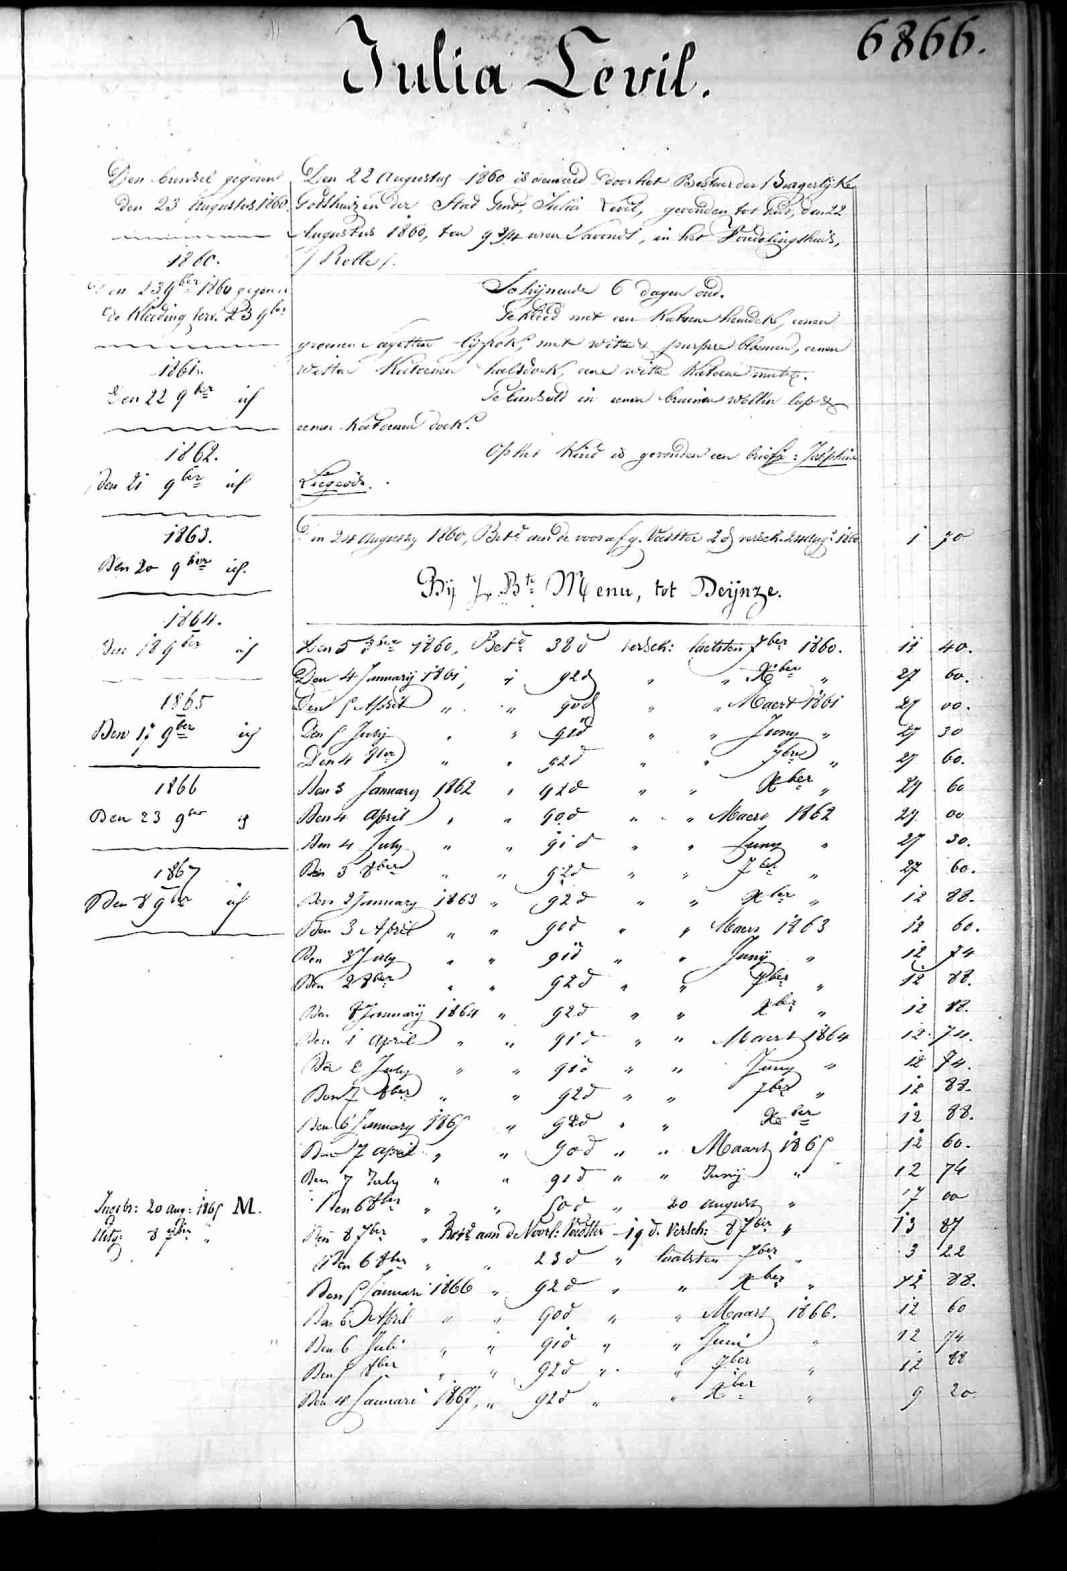 6866.
Julia Levil.
Den bundel gegeven
den 23 Augustus 1860
1860.
Den 23 9ber 1860 gegeven
de kleeding vers. 23 9ber
1861.
Den 22 9ber id
1862.
Den 21 9ber id
1863.
Den 20 9ber id.
1864.
Den 18 9ber id
1865
Den 17 9ber id
1866
Den 23 9ber id
1867
Den 8 9ber id
Ingebr: 20 aug: 1865 M.
Uitg: 8 7ber "
Den 22 Augustus 1860 is door het Bestuer der Burgerlyke
Godshuizen der Stad Gend, Julia Levil, gevonden tot Gend, den 22
Augustus 1860, ten 9 3/4 uren 's avonds, in het Vondelingshuis,
/ Rolle /.
Schijnende 6 dagen oud.
Gekleed met een katoene hemdek, eenen
met witte & purpere bloemen, eenen
witten katoenen halsdoek, eene witte katoene muts.
Gebunseld in eenen bruinen wollen lap &
eenen katoenen doek.
Op het kind is gevonden een briefje: Joséphine
Liegeois.
Den 24 Augusty 1860, Betd aan de voorafg. Voedster 2 d versch. 1860 1 70
Bij J. Bte Menu, tot Deijnze.
Den 5 8ber 1860, Betd 38 d versch: laetsten 7ber 1860. 11 40.
Den 4 January 1861, " 92 d " " Xber " 27 60.
Den 5 April " " 90 d " " Maert 1861 27 00.
Den 5 July " " 91 d " " Juny " 27 30
Den 4 8ber " " 92 d " " 7ber " 27 60.
Den 3 January 1862 " 92 d " " Xber " 27 60
Den 4 April " " 90 d " " Maert 1862 27 00
Den 4 July " " 91 d " " Juny " 27 30.
Den 3 8ber " " 92 d " " 7ber " 27 60.
Den 2 January 1863 " 92 d " " Xber " 12 88.
Den 3 April " " 90 d " " Maert 1863 12 60.
Den 3 July " " 91 d " " Juny " 12 74
Den 2 8ber " " 92 d " " 7ber " 12 88.
Den 8 January 1864 " 92 d " " Xber " 12 88.
Den 1 April " " 91 d " " Maert 1864 12 74.
Den 2 July " " 91 d " " Juny " 12 74.
Den 7 8ber " " 92 d " " 7ber " 12 88.
Den 6 January 1865 " 92 d " " Xber 12 88.
Den 7 April " " 90 d " " Maart 1865 12 60.
Den 7 July " " 91 d " " Junij " 12 74
Den 6 8ber " " 50 d " 20 august " 17 00
Den 8 7ber " Betd aan de Voorl: Voedster 19 d. Versch: 8 7ber " 13 87
Den 6 8ber " " 23 d " laatsten 7ber " 3 22
Den 5 Januari 1866 " 92 d " " Xber " 12 88.
Den 6 April " " 90 d " " Maart 1866. 12 60
Den 6 Juli " " 91 d " " Juni " 12 74
Den 5 8ber " " 92 d " " 7ber " 12 88
Den 4 Januari 1867, " 92 d " " Xber " 9 20